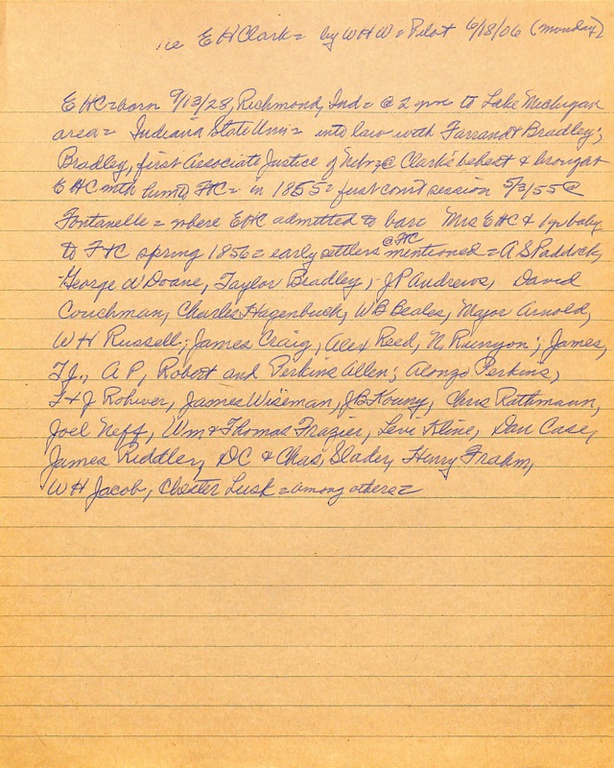 ie E H Clark = by W H W = Pilot 6/18/06 (Monday)
E H C = born 9/13/28, Richmond, Ind = @ 2 yrs to Lake Michigan
area = Indiana State Univ = into law with Farrand & Bradley;
Bradley, first Associate Justice of Nebr @ Clark's behest & brought
E H C with him to FtC = in 1855 = first court session 5/3/55 @
Fontanelle = where E H C admitted to bar = Mrs E H C & 1 yr baby
to Ft C spring 1856 = early settlers @ FtC mentioned = A S Paddock,
George W Doane, Taylor Bradley, J P Andrews, David
Couchman, Charles Hagenbuck, W B Beales, Major Arnold,
W H Russell; James Craig, Alex Reed, N. Runyon; James,
T J., A P, Robert and Perkins Allen; Alonzo Perkins,
F & J Rohwer, James Wiseman, J B Kuony, Chris Rathmann,
Joel Neff, Wm & Thomas Frazier, Levi Kline, Dan Case,
James Riddler, D C & Chas. Slader, Henry Frahm,
W H Jacob, Chester Lusk = among others =